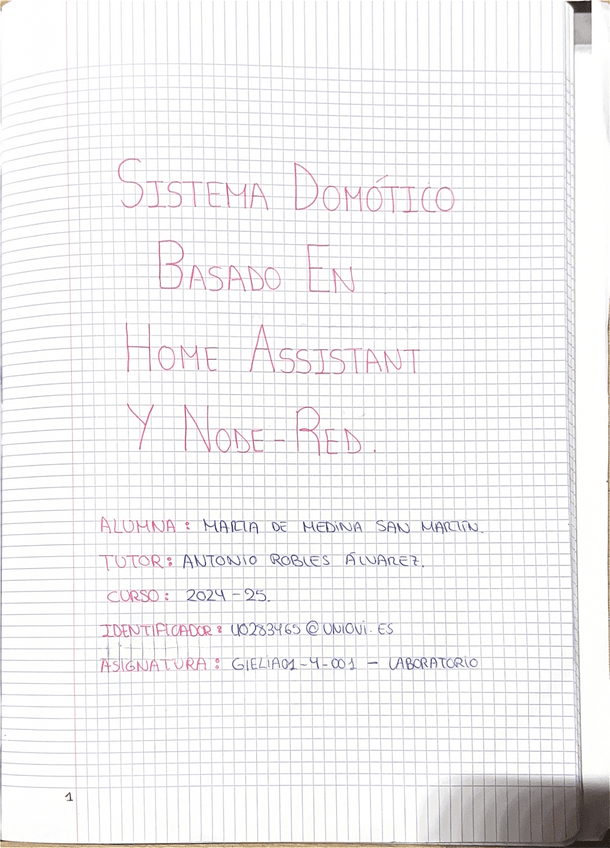 SISTEMA DOMÓTICO
BASADO EN
HOME ASSISTANT
Y NODE-RED.
ALUMNA: MARTA DE MEDINA SAN MARTÍN.
TUTOR: ANTONIO ROBLES ÁLVAREZ.
CURSO: 2024-25.
IDENTIFICADOR: UO283465@UNIOVI.ES
ASIGNATURA: GIELIA01-4-001 - LABORATORIO
1